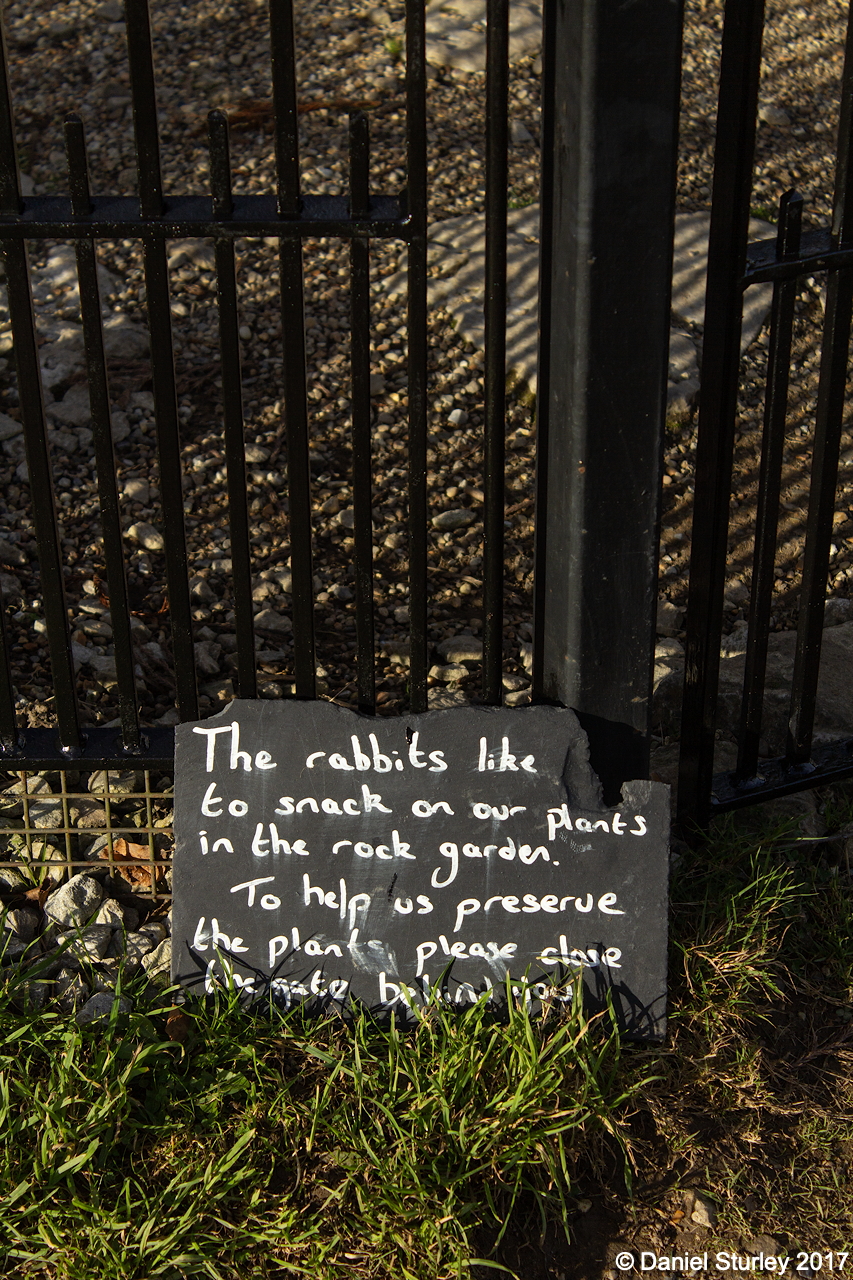 The rabbits like
to snack on our plants
in the rock garden.
To help us preserve
the plants please close
the gate behind you
© Daniel Sturley 2017